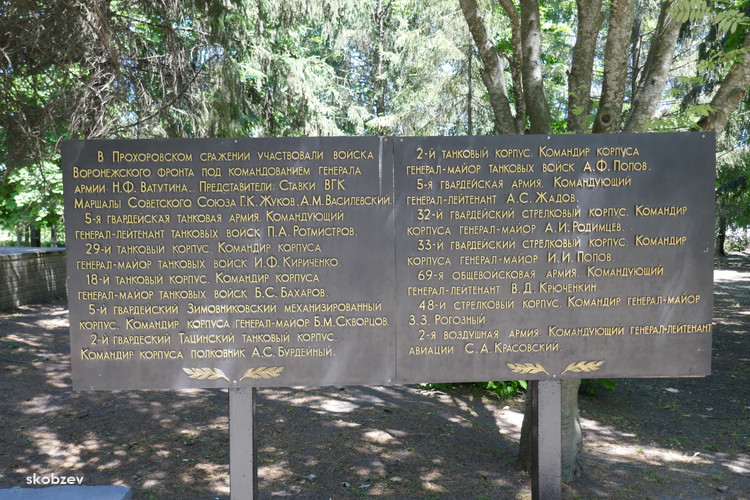 В Прохоровском сражении участвовали войска
Воронежского фронта под командованием генерала
армии Н.Ф. Ватутина. Представители Ставки ВГК
Маршалы Советского Союза Г.К. Жуков, А.М. Василевский.
5-я гвардейская танковая армия. Командующий
генерал-лейтенант танковых войск П.А. Ротмистров.
29-й танковый корпус. Командир корпуса
генерал-майор танковых войск И.Ф. Кириченко.
18-й танковый корпус. Командир корпуса
генерал-майор танковых войск Б.С. Бахаров.
5-й гвардейский Зимовниковский механизированный
корпус. Командир корпуса генерал-майор Б.М. Скворцов.
2-й гвардеский Тацинский танковый корпус.
Командир корпуса полковник А.С. Бурдейный.
2-й танковый корпус. Командир корпуса
генерал-майор танковых войск А.Ф. Попов.
5-я гвардейская армия. Командующий
генерал-лейтенант А.С. Жадов.
32-й гвардейский стрелковый корпус. Командир
корпуса генерал-майор А.И. Родимцев.
33-й гвардейский стрелковый корпус. Командир
корпуса генерал-майор И.И. Попов.
69-я общевойсковая армия. Командующий
генерал-лейтенант В.Д. Крюченкин.
48-й стрелковый корпус Командир генерал-майор
З.З. Рогозный
2-я воздушная армия. Командующий генерал-лейтенант
авиации С.А. Красовский
skobzev